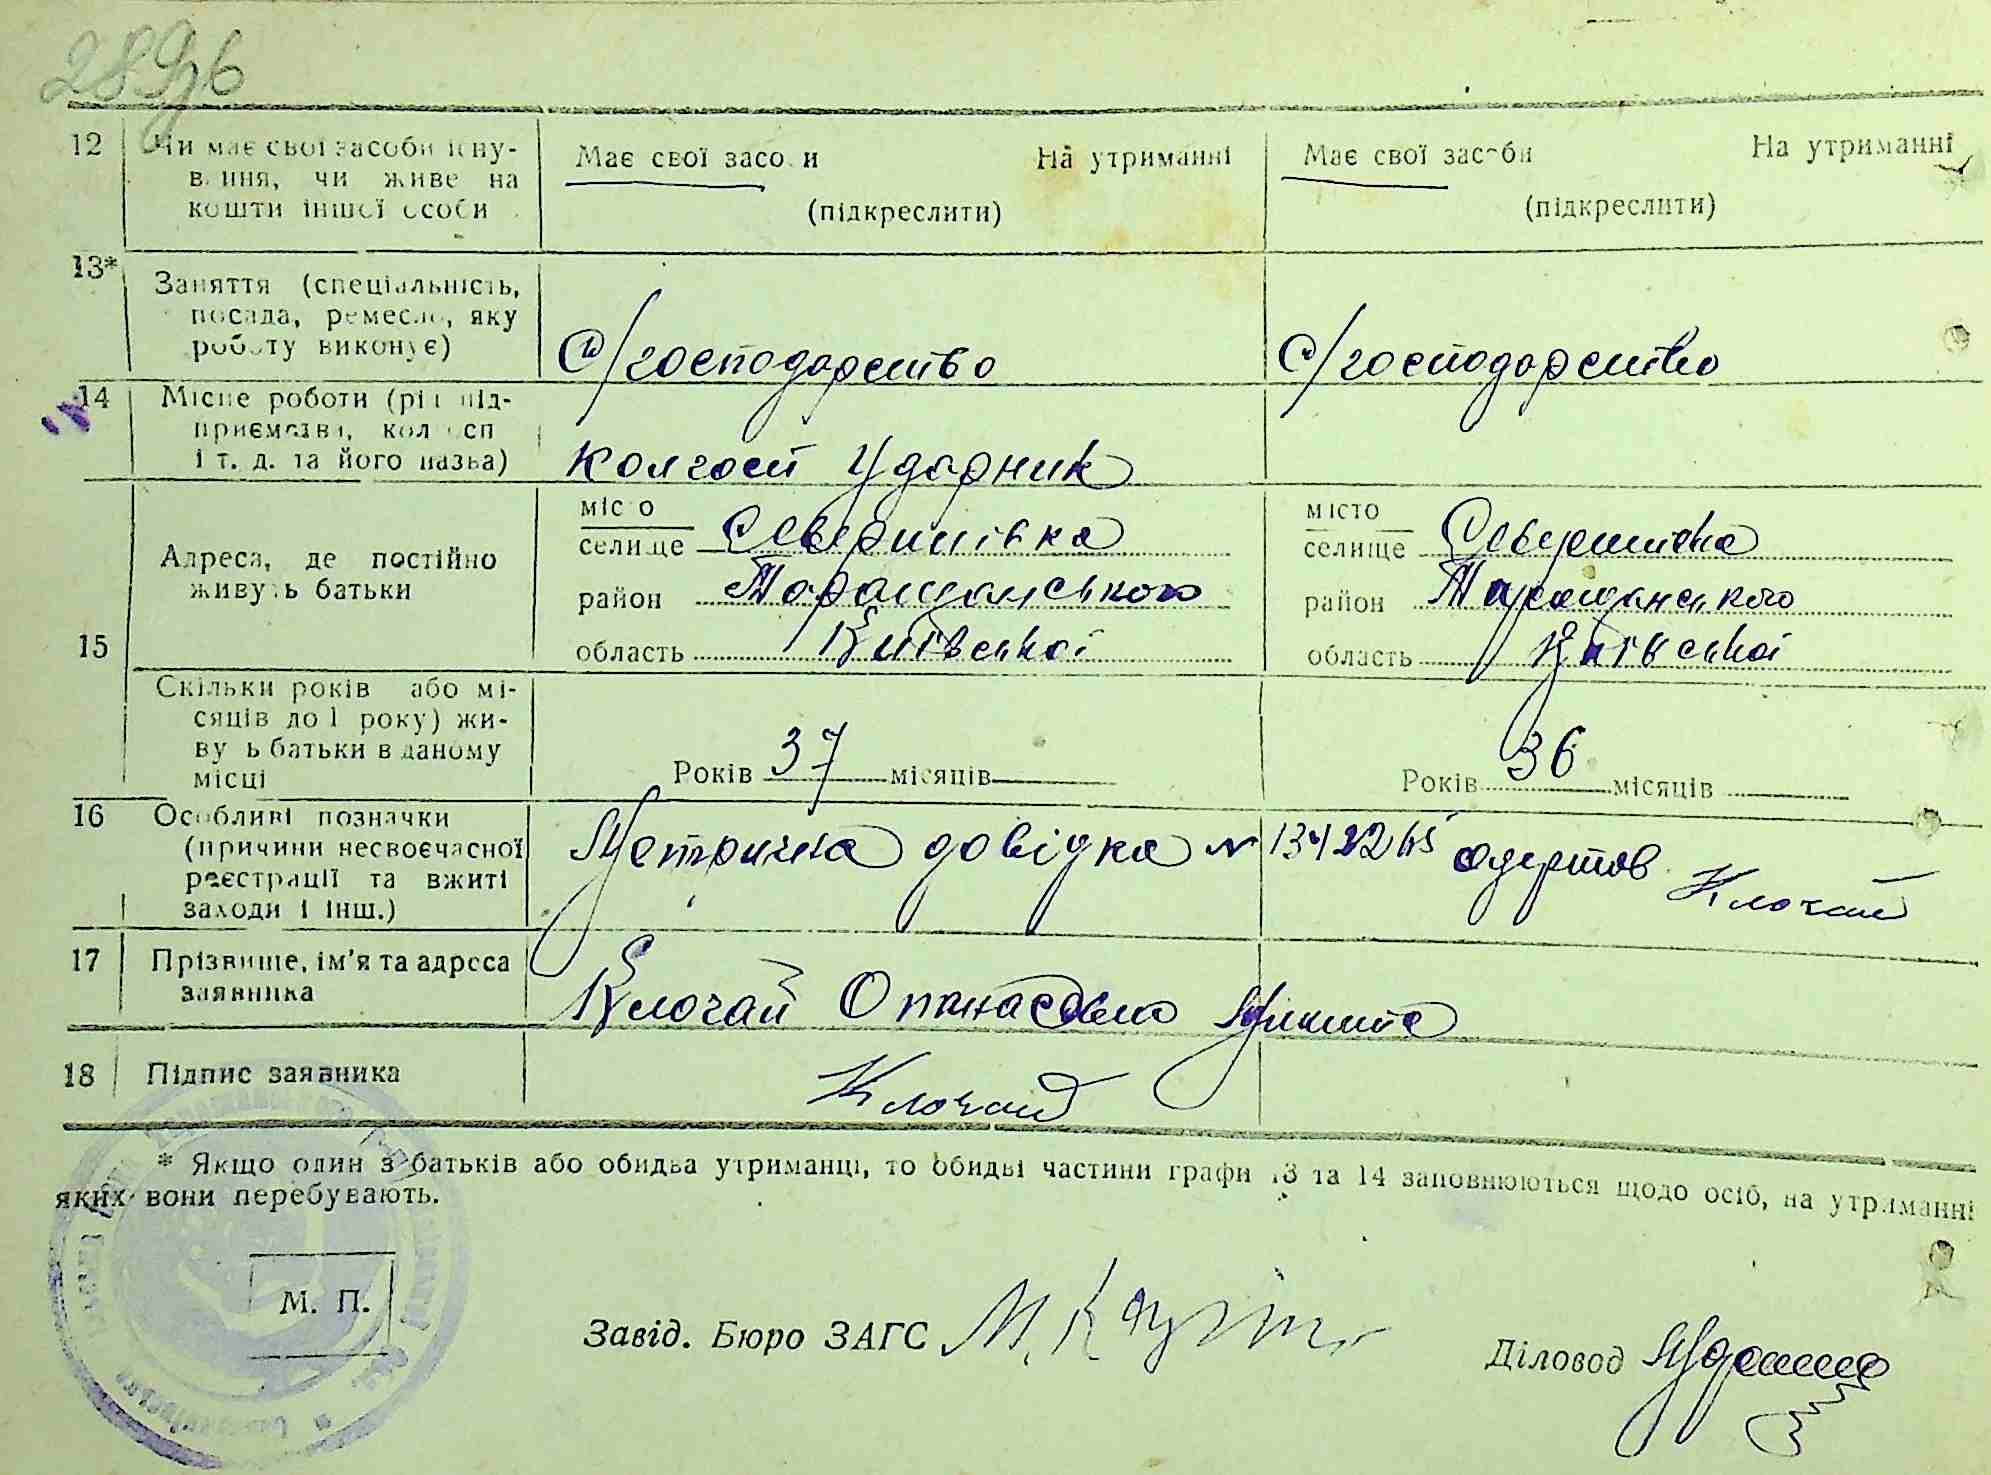 12 Чи має свої засоби існу-
вання, чи живе на
кошти іншої особи
Має свої засоби На утриманні
(підкреслити)
Має свої засоби На утриманні
(підкреслити)
13* Заняття (спеціальність,
посада, ремесло, яку
роботу виконує)
С/господарство
С/господарство
14 Місце роботи (рід під-
приємства, колгосп
і т. д. та його назва)
Колгосп Ударник
15 Адреса, де постійно
живуть батьки
місто
селище Северинівка
район Таращанського
область Київської
місто
селище Северинівка
район Таращанського
область Київської
Скільки років або мі-
сяців до 1 року) жи-
вуть батьки в даному
місці
Років 37 місяців
Років 36 місяців
16 Особливі позначки
(причини несвоєчасної
реєстрації та вжиті
заходи і інш.)
Метрична довідка № одержав Клочай
17 Прізвище, ім'я та адреса
заявника
Клочай Опанасовно Микита
18 Підпис заявника
Клочай
* Якщо один з батьків або обидва утриманці, то обидві частини графи 13 та 14 заповнюються щодо осіб, на утриманні
яких вони перебувають.
М. П.
Завід. Бюро ЗАГС
Діловод